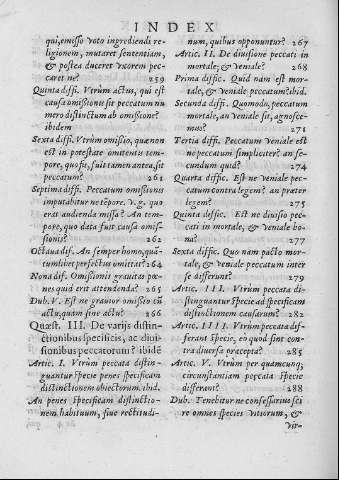 INDEX
qui, emisso voto ingrediendi re-
ligionem, mutaret sententiam,
& postea duceret vxorem pec-
caret ne? 259
Quinta diffi. Vtrùm actus, qui est
causa omissionis sit peccatum nu
mero distinctum ab omissione?
ibidem
Sexta diffi. Vtrùm omissio, quæ non
est in potestate omittentis tem-
pore, quo fit, fuit tamen antea, sit
peccatum? 261
Septima diffi. Peccatum omissionis
imputabitur ne tẽpore. v. g. quo
erat audienda missa? An tem-
pore, quo data fuit causa omis-
sionis? 262
Octaua dif. An semper homo, quã-
tum diuertit perfectius omittat? 264
Nona dif. Omissionis grauitas pœ-
nes quid erit attendenda? 265
Dub. V. Est ne grauior omissio cũ
actu, quam sine actu? 266
Quæst. III. De varijs distin-
ctionibus specificis, ac diui-
sionibus peccatorum? ibidẽ
Artic. I. Vtrùm peccata distin-
guantur specie penes specificam
distinctionem obiectorum. ibid.
An penes specificam distinctio-
nem habituum, siue rectitudi-
num, quibus opponuntur? 267
Artic. II. De diuisione peccati in
mortale; & veniale? 268
Prima diffic. Quid nam est mor-
tale, & veniale peccatum? ibid.
Secunda diff. Quomodo, peccatum
mortale, an veniale sit, agnosce-
mus? 271
Tertia diffi. Peccatum Veniale est
ne peccatum simpliciter? an se-
cundum quid? 274
Quarta diffic. Est ne Veniale pec-
catum contra legem? an præter
legem? 275
Quinta deffic. Est ne diuisio pec-
cati in mortale, & veniale bo-
na? 277
Sexta diffic. Quo nam pacto mor-
tale, & veniale peccatum inter
se differunt? 279
Artic. III. Vtrùm peccata di-
stinguantur specie ad specificam
distinctionem causarum? 282
Artic. IIII. Vtrùm peccata dif-
ferant specie, eo quod sint con-
tra diuersa præcepta? 285
Artic. V. Vtrùm per quamcunq;
circunstantiam peccata specie
differant? 288
Dub. Tenebitur ne confessarius sci
re omnes species vitiorum, &
vir-